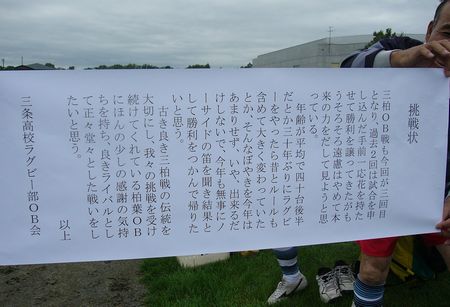 挑戦状
三柏OB戦も今回が三回目
となり、過去2回は試合を申
し込んだ手前一応花を持た
せて勝利を譲ってきたがも
うそろそろ遠慮はやめて本
来の力をだして見ようと思
っている。
年齢が平均で四十台後半
だとか三十年ぶりにラグビ
ーをやったら昔とルールも
含めて大きく変わっていた
とか、そんなぼやきを今年は
あまりせず、いや、出来るだ
けしないで、今年も無事にノ
ーサイドの笛を聞き結果と
して勝利をつかんで帰りた
いと思う。
古き良き三柏戦の伝統を
大切にし、我々の挑戦を受け
続けてくれている柏葉OB
にほんの少しの感謝の気持
ちを持ち、良きライバルとし
て正々堂々とした戦いをし
たいと思う。
以上
三条高校ラグビー部OB会